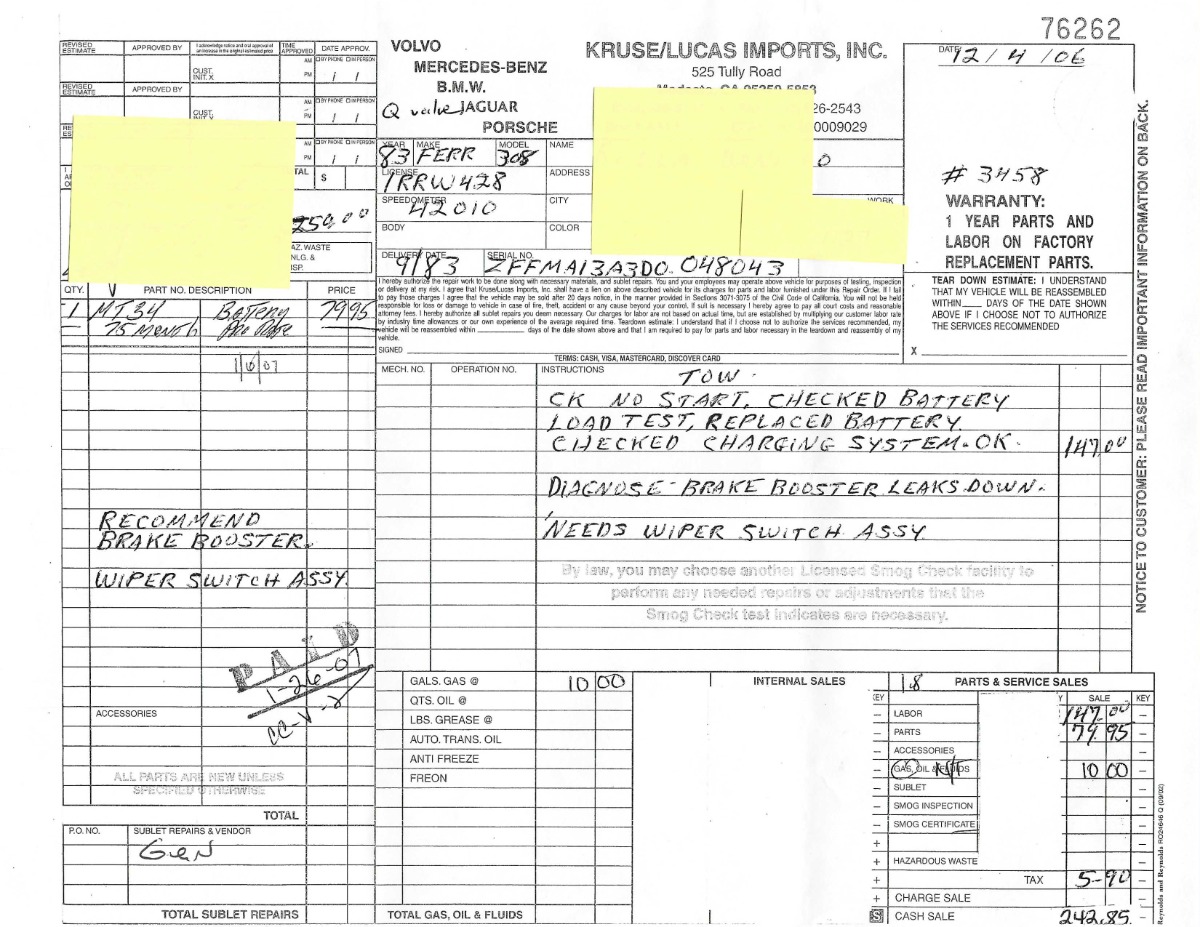 76262
REVISED ESTIMATE
APPROVED BY
I acknowledge notice and oral approval of an increase in the original estimated price
CUST. INIT. X
TIME APPROVED
AM
PM
DATE APPROV.
BY PHONE IN PERSON
/ /
REVISED ESTIMATE
APPROVED BY
CUST.
AM
PM
BY PHONE IN PERSON
/ /
AM
PM
BY PHONE IN PERSON
/ /
TAL
$
259.00
AZ. WASTE
NLG. &
ISP.
VOLVO
MERCEDES-BENZ
B.M.W.
JAGUAR
PORSCHE
KRUSE/LUCAS IMPORTS, INC.
525 Tully Road
26-2543
0009029
DATE 12/4/06
# 3458
WARRANTY:
1 YEAR PARTS AND
LABOR ON FACTORY
REPLACEMENT PARTS.
YEAR 83 MAKE FERR MODEL 308
NAME
LICENSE 1RRW428
ADDRESS
SPEEDOMETER 42010
CITY
WORK
BODY
COLOR
DELIVERY DATE 9/83
SERIAL NO. ZFFMA13A3D0 048043
TEAR DOWN ESTIMATE: I UNDERSTAND
THAT MY VEHICLE WILL BE REASSEMBLED
WITHIN____ DAYS OF THE DATE SHOWN
ABOVE IF I CHOOSE NOT TO AUTHORIZE
THE SERVICES RECOMMENDED
X
I hereby authorize the repair work to be done along with necessary materials, and sublet repairs. You and your employees may operate above vehicle for purposes of testing, inspection
or delivery at my risk. I agree that Kruse/Lucas Imports, Inc. shall have a lien on above described vehicle for its charges for parts and labor furnished under this Repair Order. If I fail
to pay those charges I agree that the vehicle may be sold after 20 days notice, in the manner provided in Sections 3071-3075 of the Civil Code of California. You will not be held
responsible for loss or damage to vehicle in case of fire, theft, accident or any cause beyond your control. If suit is necessary I hereby agree to pay all court costs and reasonable
attorney fees. I hereby authorize all sublet repairs you deem necessary. Our charges for labor are not based on actual time, but are established by multiplying our customer labor rate
by industry time allowances or our own experience of the average required time. Teardown estimate: I understand that if I choose not to authorize the services recommended, my
vehicle will be reassembled within ______ days of the date shown above and that I am required to pay for parts and labor necessary in the teardown and reassembly of my
vehicle.
SIGNED
TERMS: CASH, VISA, MASTERCARD, DISCOVER CARD
QTY.
PART NO. DESCRIPTION
PRICE
1 MT34 Battery 79.95
75 Month
1/6/07
RECOMMEND
BRAKE BOOSTER.
WIPER SWITCH ASSY
PAID
1-26-07
CC-V-2
ACCESSORIES
ALL PARTS ARE NEW UNLESS
SPECIFIED OTHERWISE
TOTAL
P.O. NO.
SUBLET REPAIRS & VENDOR
TOTAL SUBLET REPAIRS
MECH. NO.
OPERATION NO.
INSTRUCTIONS
TOW.
CK NO START, CHECKED BATTERY
LOAD TEST, REPLACED BATTERY.
CHECKED CHARGING SYSTEM-OK. 147.00
DIAGNOSE-BRAKE BOOSTER LEAKS DOWN.
NEEDS WIPER SWITCH ASSY
By law, you may choose another Licensed Smog Check facility to
perform any needed repairs or adjustments that the
Smog Check test indicates are necessary.
GALS. GAS @ 10 00
QTS. OIL @
LBS. GREASE @
AUTO. TRANS. OIL
ANTI FREEZE
FREON
TOTAL GAS, OIL & FLUIDS
INTERNAL SALES
18 PARTS & SERVICE SALES
KEY
SALE
KEY
LABOR 147.00
PARTS 79.95
ACCESSORIES
GAS, OIL & FLUIDS 10 00
SUBLET
SMOG INSPECTION
SMOG CERTIFICATE
HAZARDOUS WASTE
TAX 5-90
CHARGE SALE
CASH SALE 242.85
NOTICE TO CUSTOMER: PLEASE READ IMPORTANT INFORMATION ON BACK.
Reynolds and Reynolds RO24646 Q (09/02)